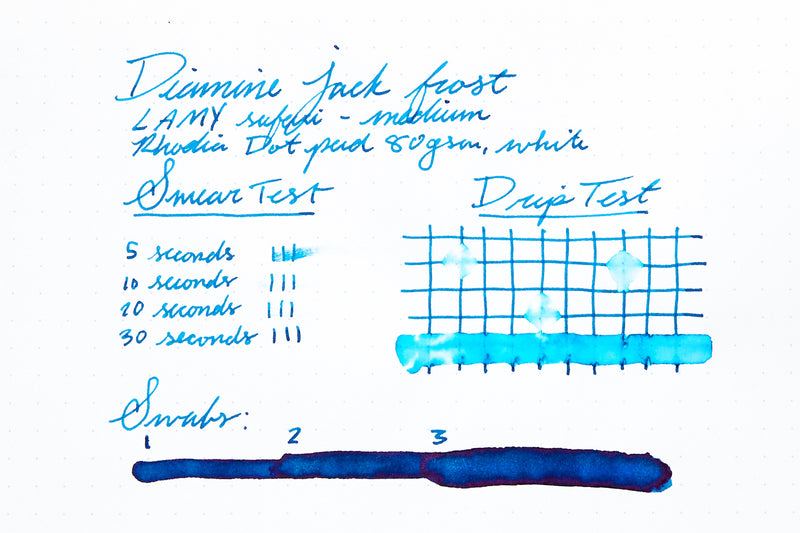 Diamine jack frost
LAMY safari - medium
Rhodia Dot pad 80gsm, white
Smear Test
5 seconds
10 seconds
20 seconds
30 seconds
Drip Test
Swabs:
1 2 3